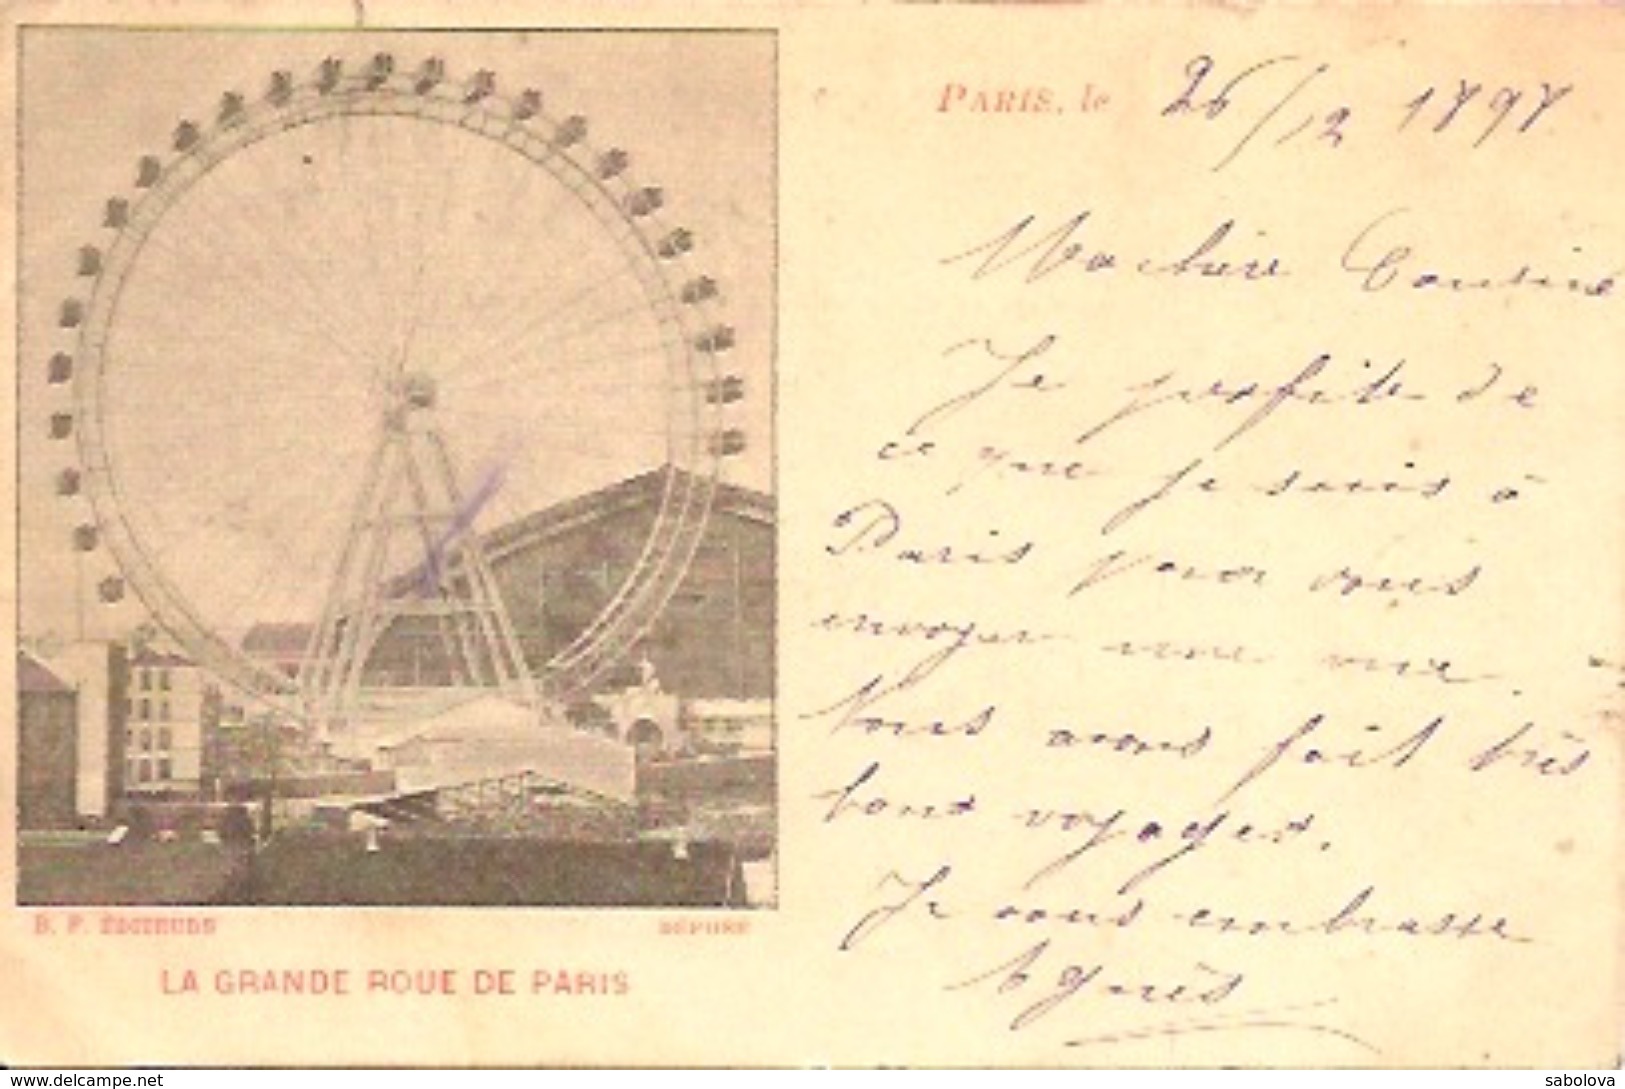 PARIS, le 26/12 1898
Ma chère Cousine
Je profite de
ce que je suis à
Paris pour vous
envoyer une vue.
Nous avons fait très
bons voyages.
Je vous embrasse
Agnès
B. F. ÉDITEURS
DÉPOSÉ
LA GRANDE ROUE DE PARIS
www.delcampe.net
sabolova